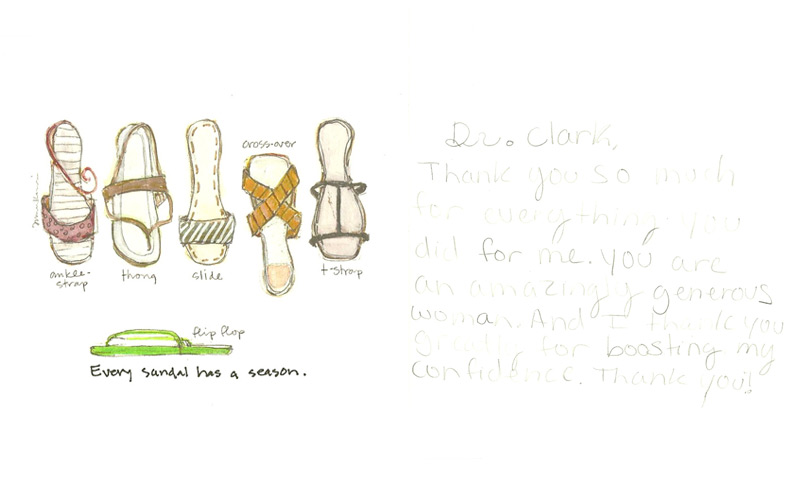 cross-over
ankle-
strap
thong
slide
t-strap
flip flop
Every sandal has a season.
Dr. Clark,
Thank you so much
for everything you
did for me. You are
an amazingly generous
woman. And I thank you
greatly for boosting my
confidence. Thank you!